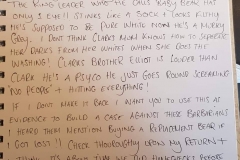 THE KING LEADER WHO HE CALLS BABY BEAR HAS
ONLY 1 EYE!! STINKS LIKE A SOCK + LOOKS FILTHY
HE'S SUPPOSED TO BE PURE WHITE NOW HE'S A MURKY
GREY. I DON'T THINK CLARKS MOM KNOWS HOW TO SEPERATE
HER DARKS FROM HER WHITES WHEN SHE DOES THE
WASHING! CLARKS BROTHER ELLIOT IS LOUDER THAN
CLARK HE'S A PSYCO HE JUST GOES ROUND SCREAMING
NO PEOPLE + HITTING EVERYTHING!
IF I DONT MAKE IT BACK I WANT YOU TO USE THIS AS
EVIDENCE TO BUILD A CASE AGAINST THESE BARBARIANS
I HEARD THEM MENTION BUYING A REPLACEMENT BEAR IF
I GOT LOST!! CHECK THOUROUGHLY UPON MY RETURN +
IT'S ABOUT TIME WE DID